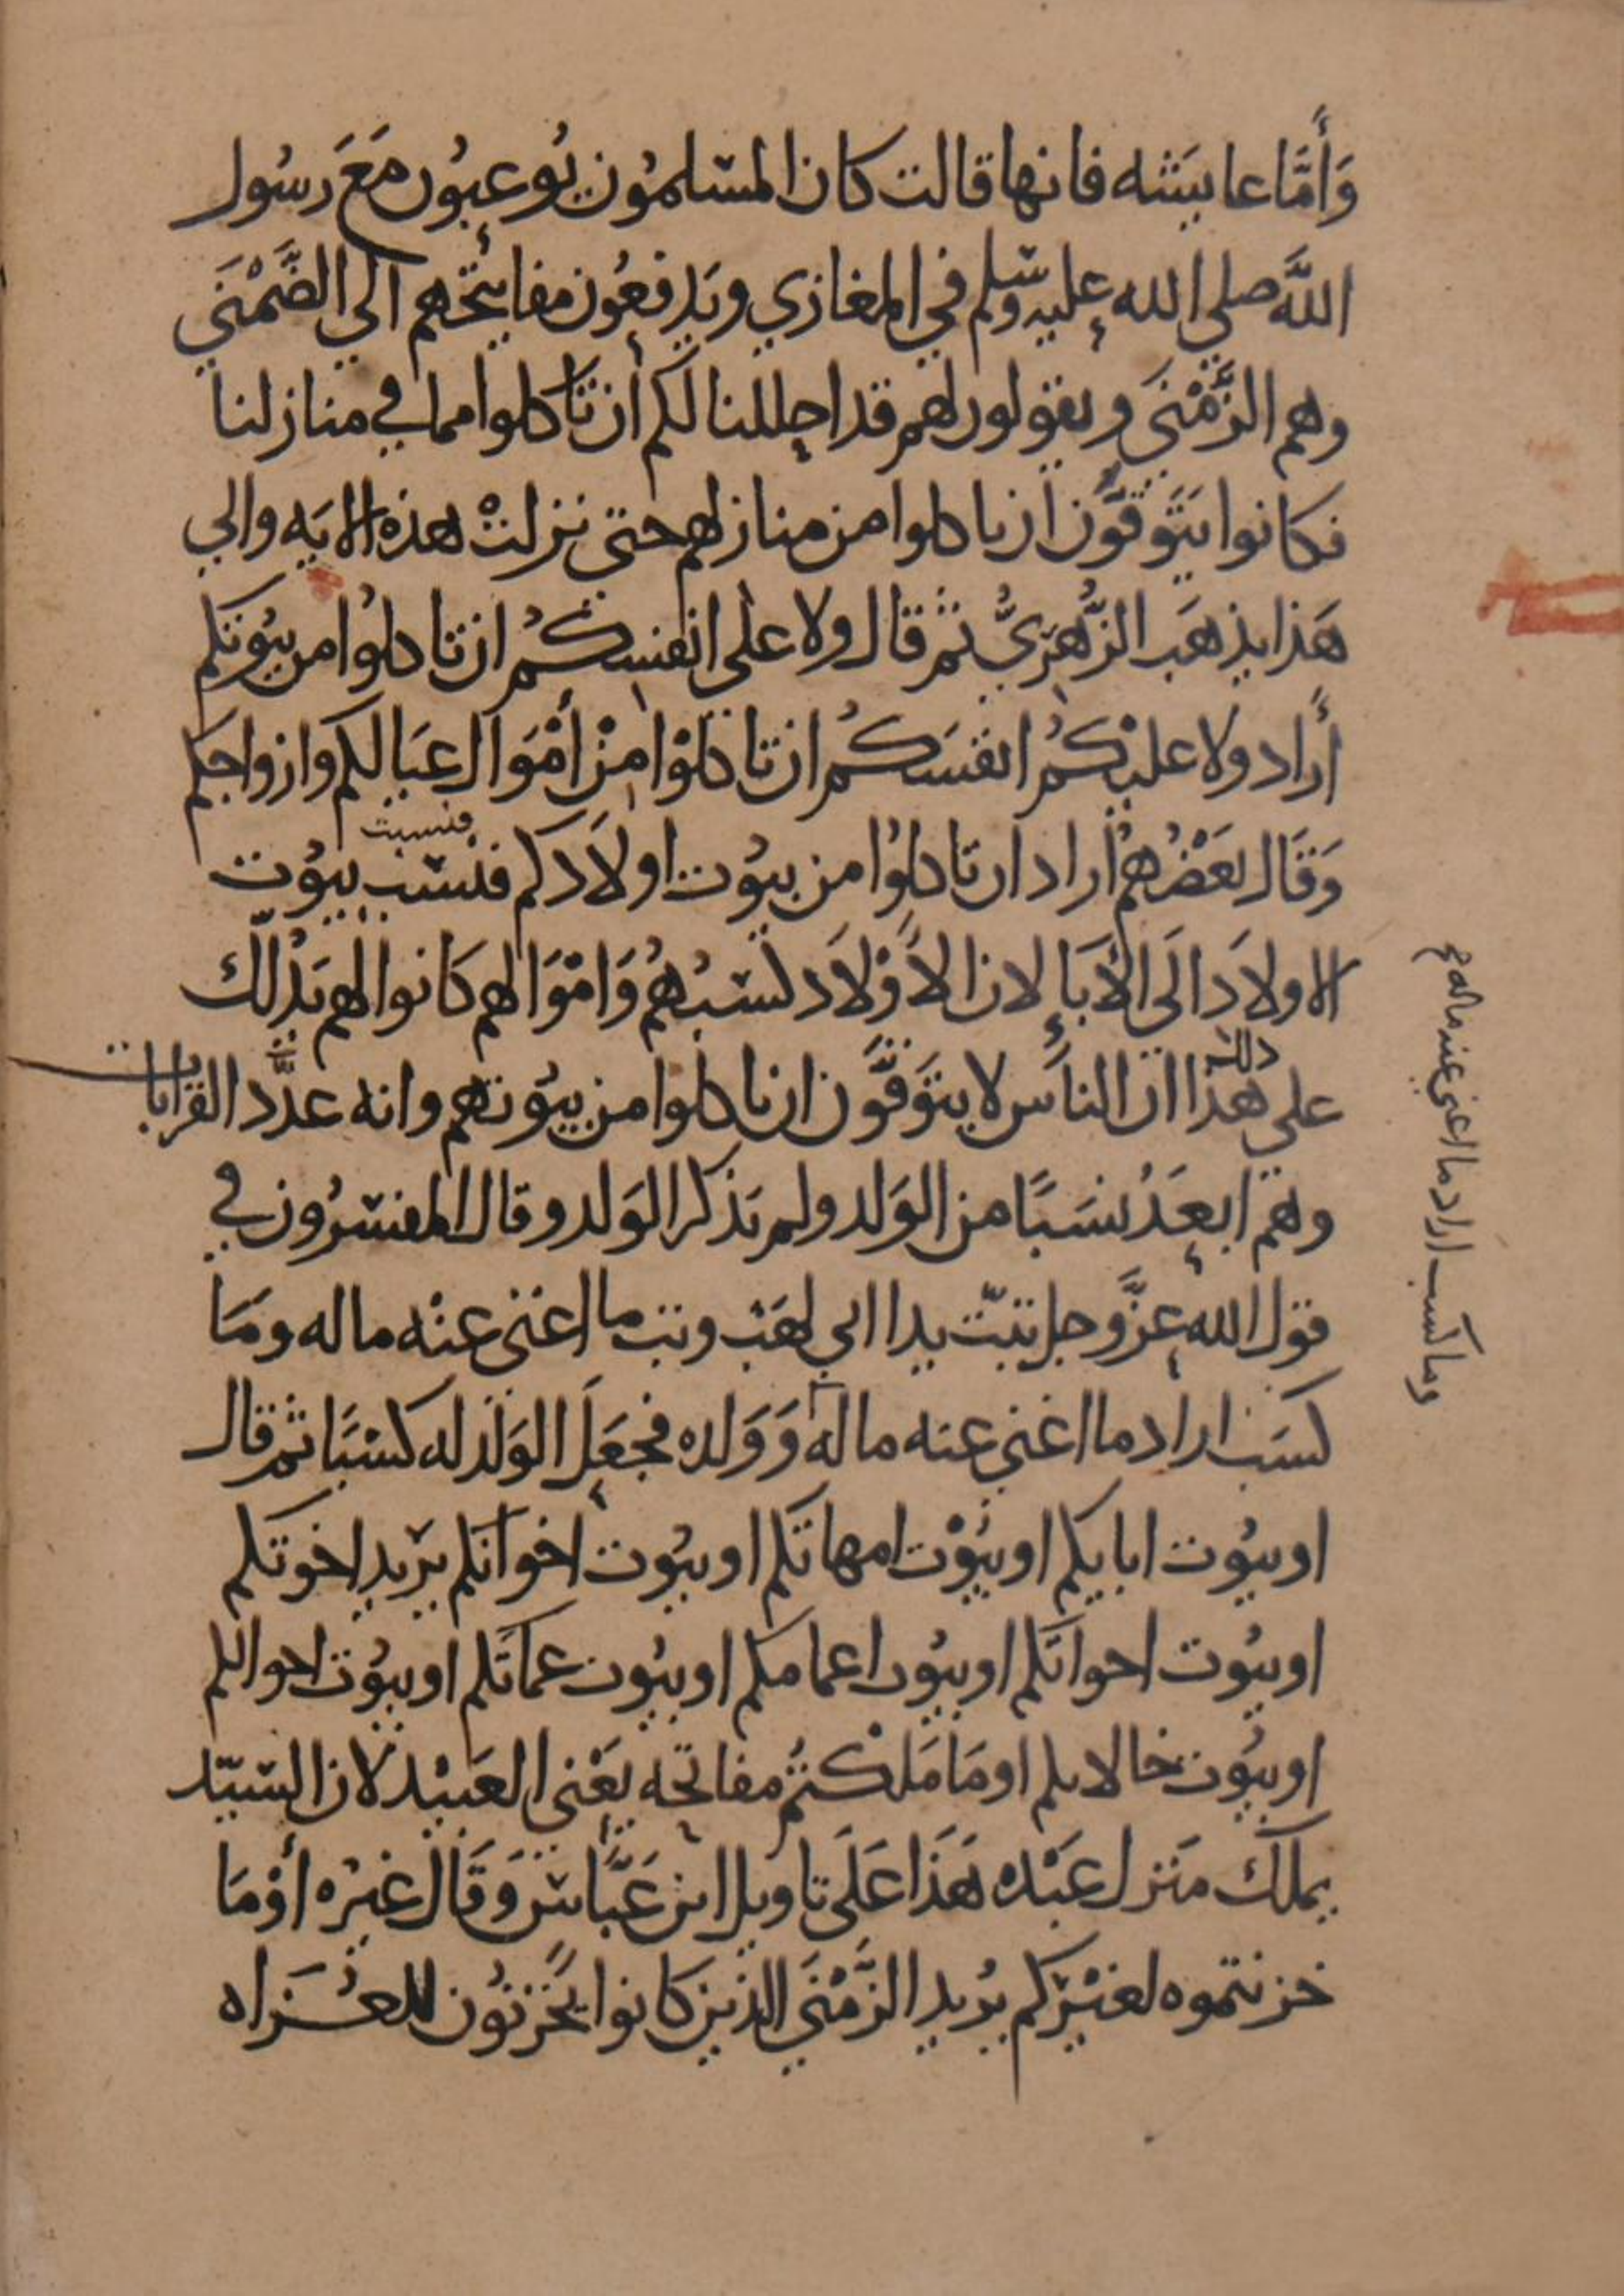 وَأَمَّا عايشه فانها قالت كان المسلمُون يُوعِبُون مَعَ رسُول
اللَّه صلى الله عليه وسلم في المغازي ويَدفعُون مفاتيحهم الي الضَّمْنَي
وهم الزَّمْنَى ويقولون لهم قد احللنا لكم أن تأكلوا مما في منازلنا
فكانوا يَتَوقَّون ان ياكلوا من منازلهم حتى نزلتْ هذه الايه والي
هَذا يذهَب الزُّهْرِيُّ ثم قال ولا على انفسكُم ان تاكلوُا من بيُوتكم
أراد ولا عليْكُم انفسَكُم ان تاكلوْا مِنْ أمْوَال عيَالكم وازواجكم
وَقَال بَعْضُهُمْ اراد ان تاكلوُا من بيُوت اولاَدكم فنسَب بيُوت
فنسبت
الاولاَد الَى الأبَاءِ لان الأَوْلاَد كسْبُهُمْ وَامْوَالهم كَانوا لهم يَدُلّك
على هذا ان الناسَ لا يتوَقَّون ان ياكلوا من بيُوتهم وانه عدَّد القرابات
ذلك
وهم ابعَدُ نسَبًا من الوَلد ولم يَذكر الوَلد وقال المفسّرُون في
قول الله عزَّ وجل تبّت يدا ابي لهَبْ وتب ما اغنى عنْه ماله ومَا
كسَب اراد ما اغني عنه ماله وَوَلده فجَعَلَ الوَلَد له كسْبًا ثم قال
او بيُوت ابايكم او بيُوْت امهاتكم او بيُوت اخوانكم يرْيد اخوتكم
او بيُوت اخواتكم او بيُوت اعمامكم او بيُوت عماتكم او بيُوت اخوالكم
او بيُوت خالاتكم او مَا مَلكْتُمْ مفاتحه يَعْني العَبيْد لان السّيّد
يملك مَنزل عَبْده هَذَا عَلَى تاويل ابن عَبَّاس وَقَال غيْره أوْمَا
خزنتموه لغيْركم يرُيد الزَّمْنَي الذين كانوا يَخْزنُون للغُزاه
وما كسب اراد ما اغنى عنه ماله